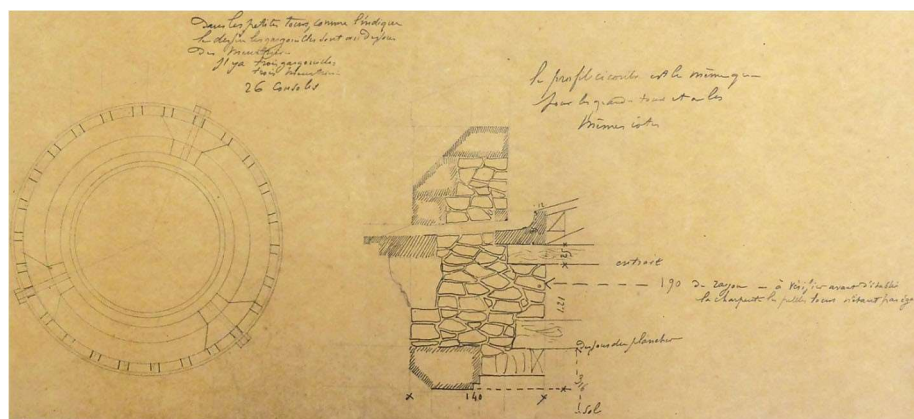 Dans les petites tours, comme l'indique
le dessin les gargouilles sont au dessous
Des Meurtrières
Il y a trois gargouilles
trois Meurtrières
26 Consoles
le profil ci-contre est le même que
pour les grandes tours et a les
Mêmes cotes
entrait
1.90 de rayon — à vérifier avant d'établir
la charpente les petites tours n'étant pas
dessous du plancher
127
140
sol